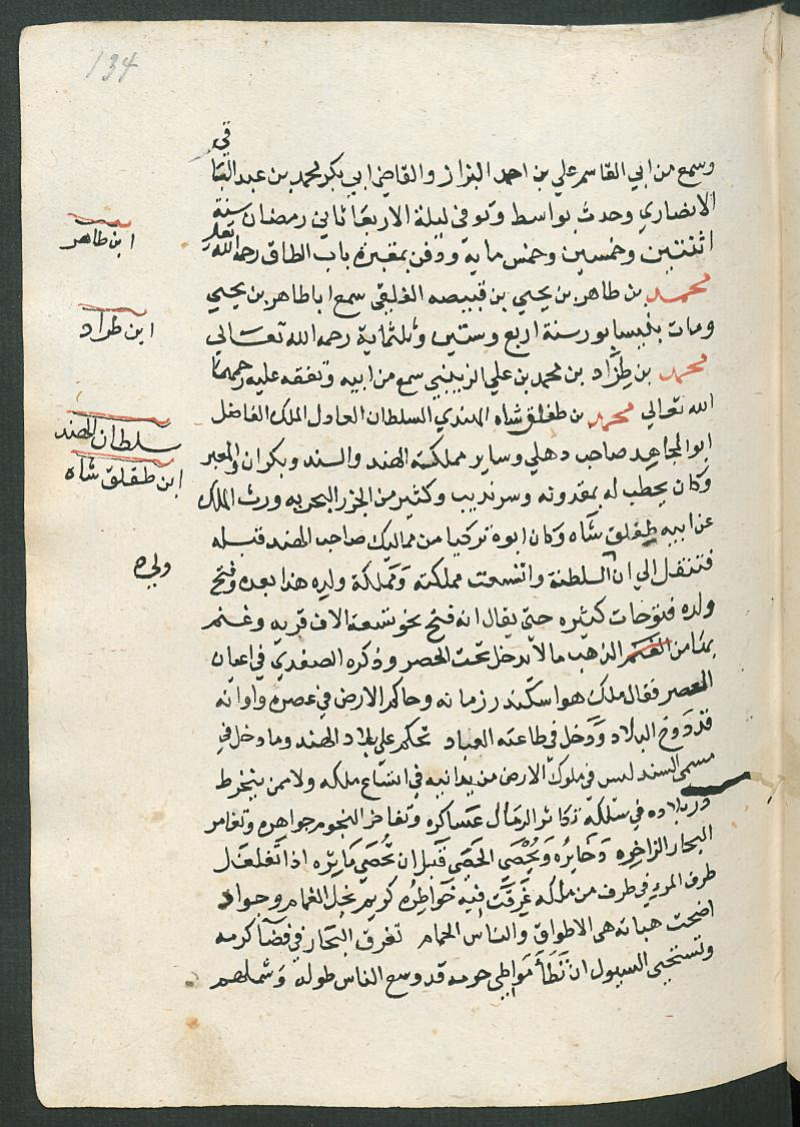 134
وسمع من ابي القاسم علي بن احمد البزاز والقاضي ابي بكر محمد بن عبد الباقي
الانصاري وحدث بواسط وتوفي ليلة الاربعا ثاني رمضان سنة
اثنتين وخمسين وخمس ماية ودفن بمقبرة باب الطاق رحمه الله تعلى
ابن طاهر
محمد بن طاهر بن يحيي بن قبيصه الفلقي سمع اباطاهر بن يحيي
ومات بنيسابور سنة اربع وستين وثلثماية رحمه الله تعالي
ابن طراد
محمد بن طراد بن محمد بن علي الزينبي سمع من ابيه وتفقه عليه رحمهما
الله تعالي محمد بن طغلق شاه الهندي السلطان العادل الملك الفاضل
سلطان الهند
ابن طقلق شاه
ابو المجاهد صاحب دهلي وساير مملكته الهند والسند وبكران والمعبر
وكان يخطب له بمقدونه وسرنديب وكثير من الجزر البحريه ورث الملك
عن ابيه طغلق شاه وكان ابوه تركيا من مماليك صاحب الهند قبله
فتنقل الي ان السلطنة واتسعت مملكته ومملكة ولده هذا بعده وفتح
ولده فتوحات كثيره حتي يقال انه فتح نحو تسعة الاف قريه وغنم
بها من الغنم الذهب مالا يدخل تحت الحصر وذكره الصفدي في اعيان
العصر فقال ملك هو اسكندر زمانه وحاكم الارض في عصره واوانه
قد دوخ البلاد ودخل في طاعته العباد تحكم علي بلاد الهند وما دخل في
مسمي السند ليس في ملوك الارض من يدانيه في اتساع ملكه ولا ممن ينخرط
در بلاده في سلكه تكاثر الرمال عساكره وتفاخر النجوم جواهره وتغامر
البحار الزاخره دخايره ويحصي الحصي قبل ان تحصي مآثره اذا تغلغل
طرف المرء في طرف من ملكه غرقت فيه خواطره كريم بخل الغمام وجواد
اضحت هباته هي الاطواق والناس الحمام تغرق البحار في فضا كرمه
وتستحيي السيول ان تطأ مواطي حرمه قد وسع الناس طوله وشملهم